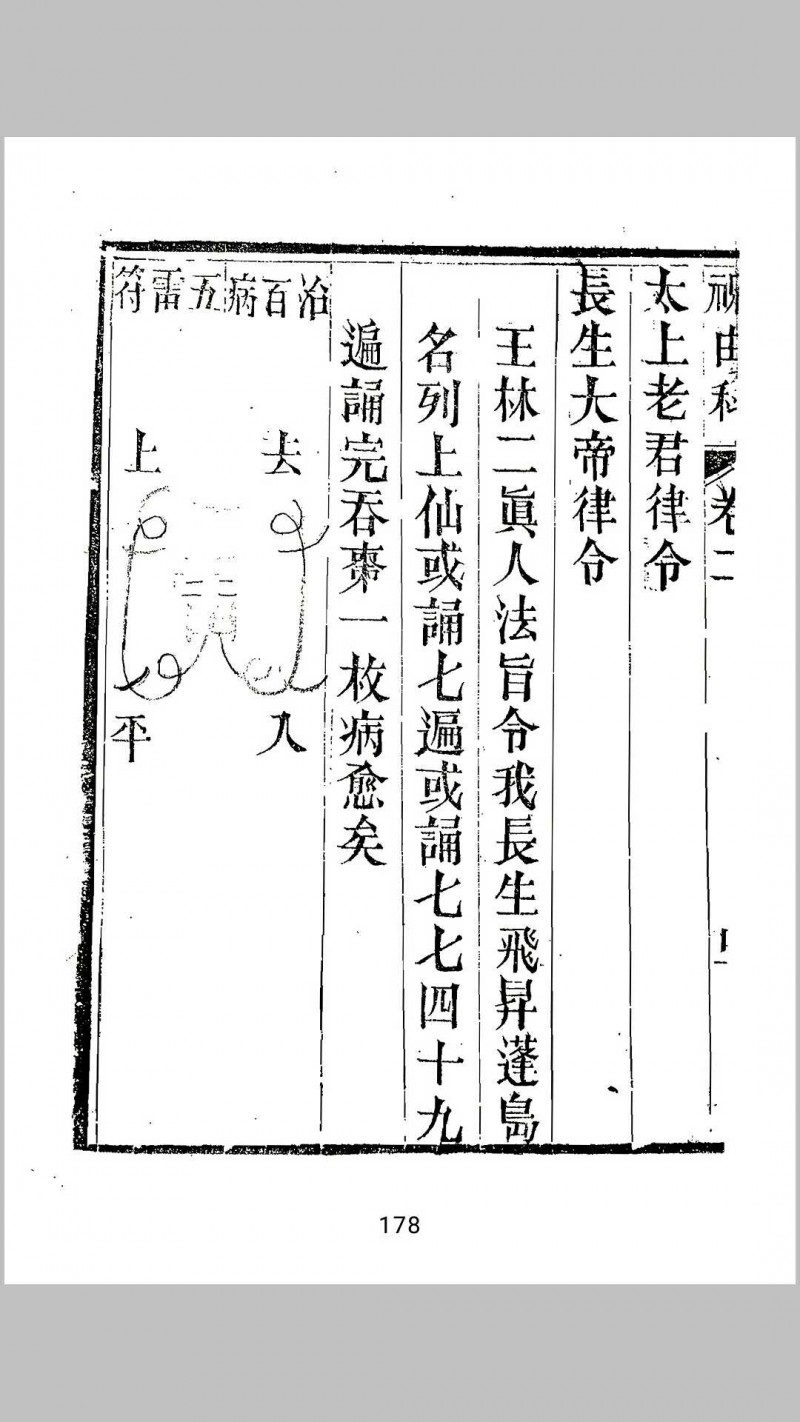 祝由科 卷二
太上老君律令
長生大帝律令
王林二眞人法旨令我長生飛昇蓬島
名列上仙或誦七遍或誦七七四十九
遍誦完吞棗一枚病愈矣
治百病五雷符
上
平
178